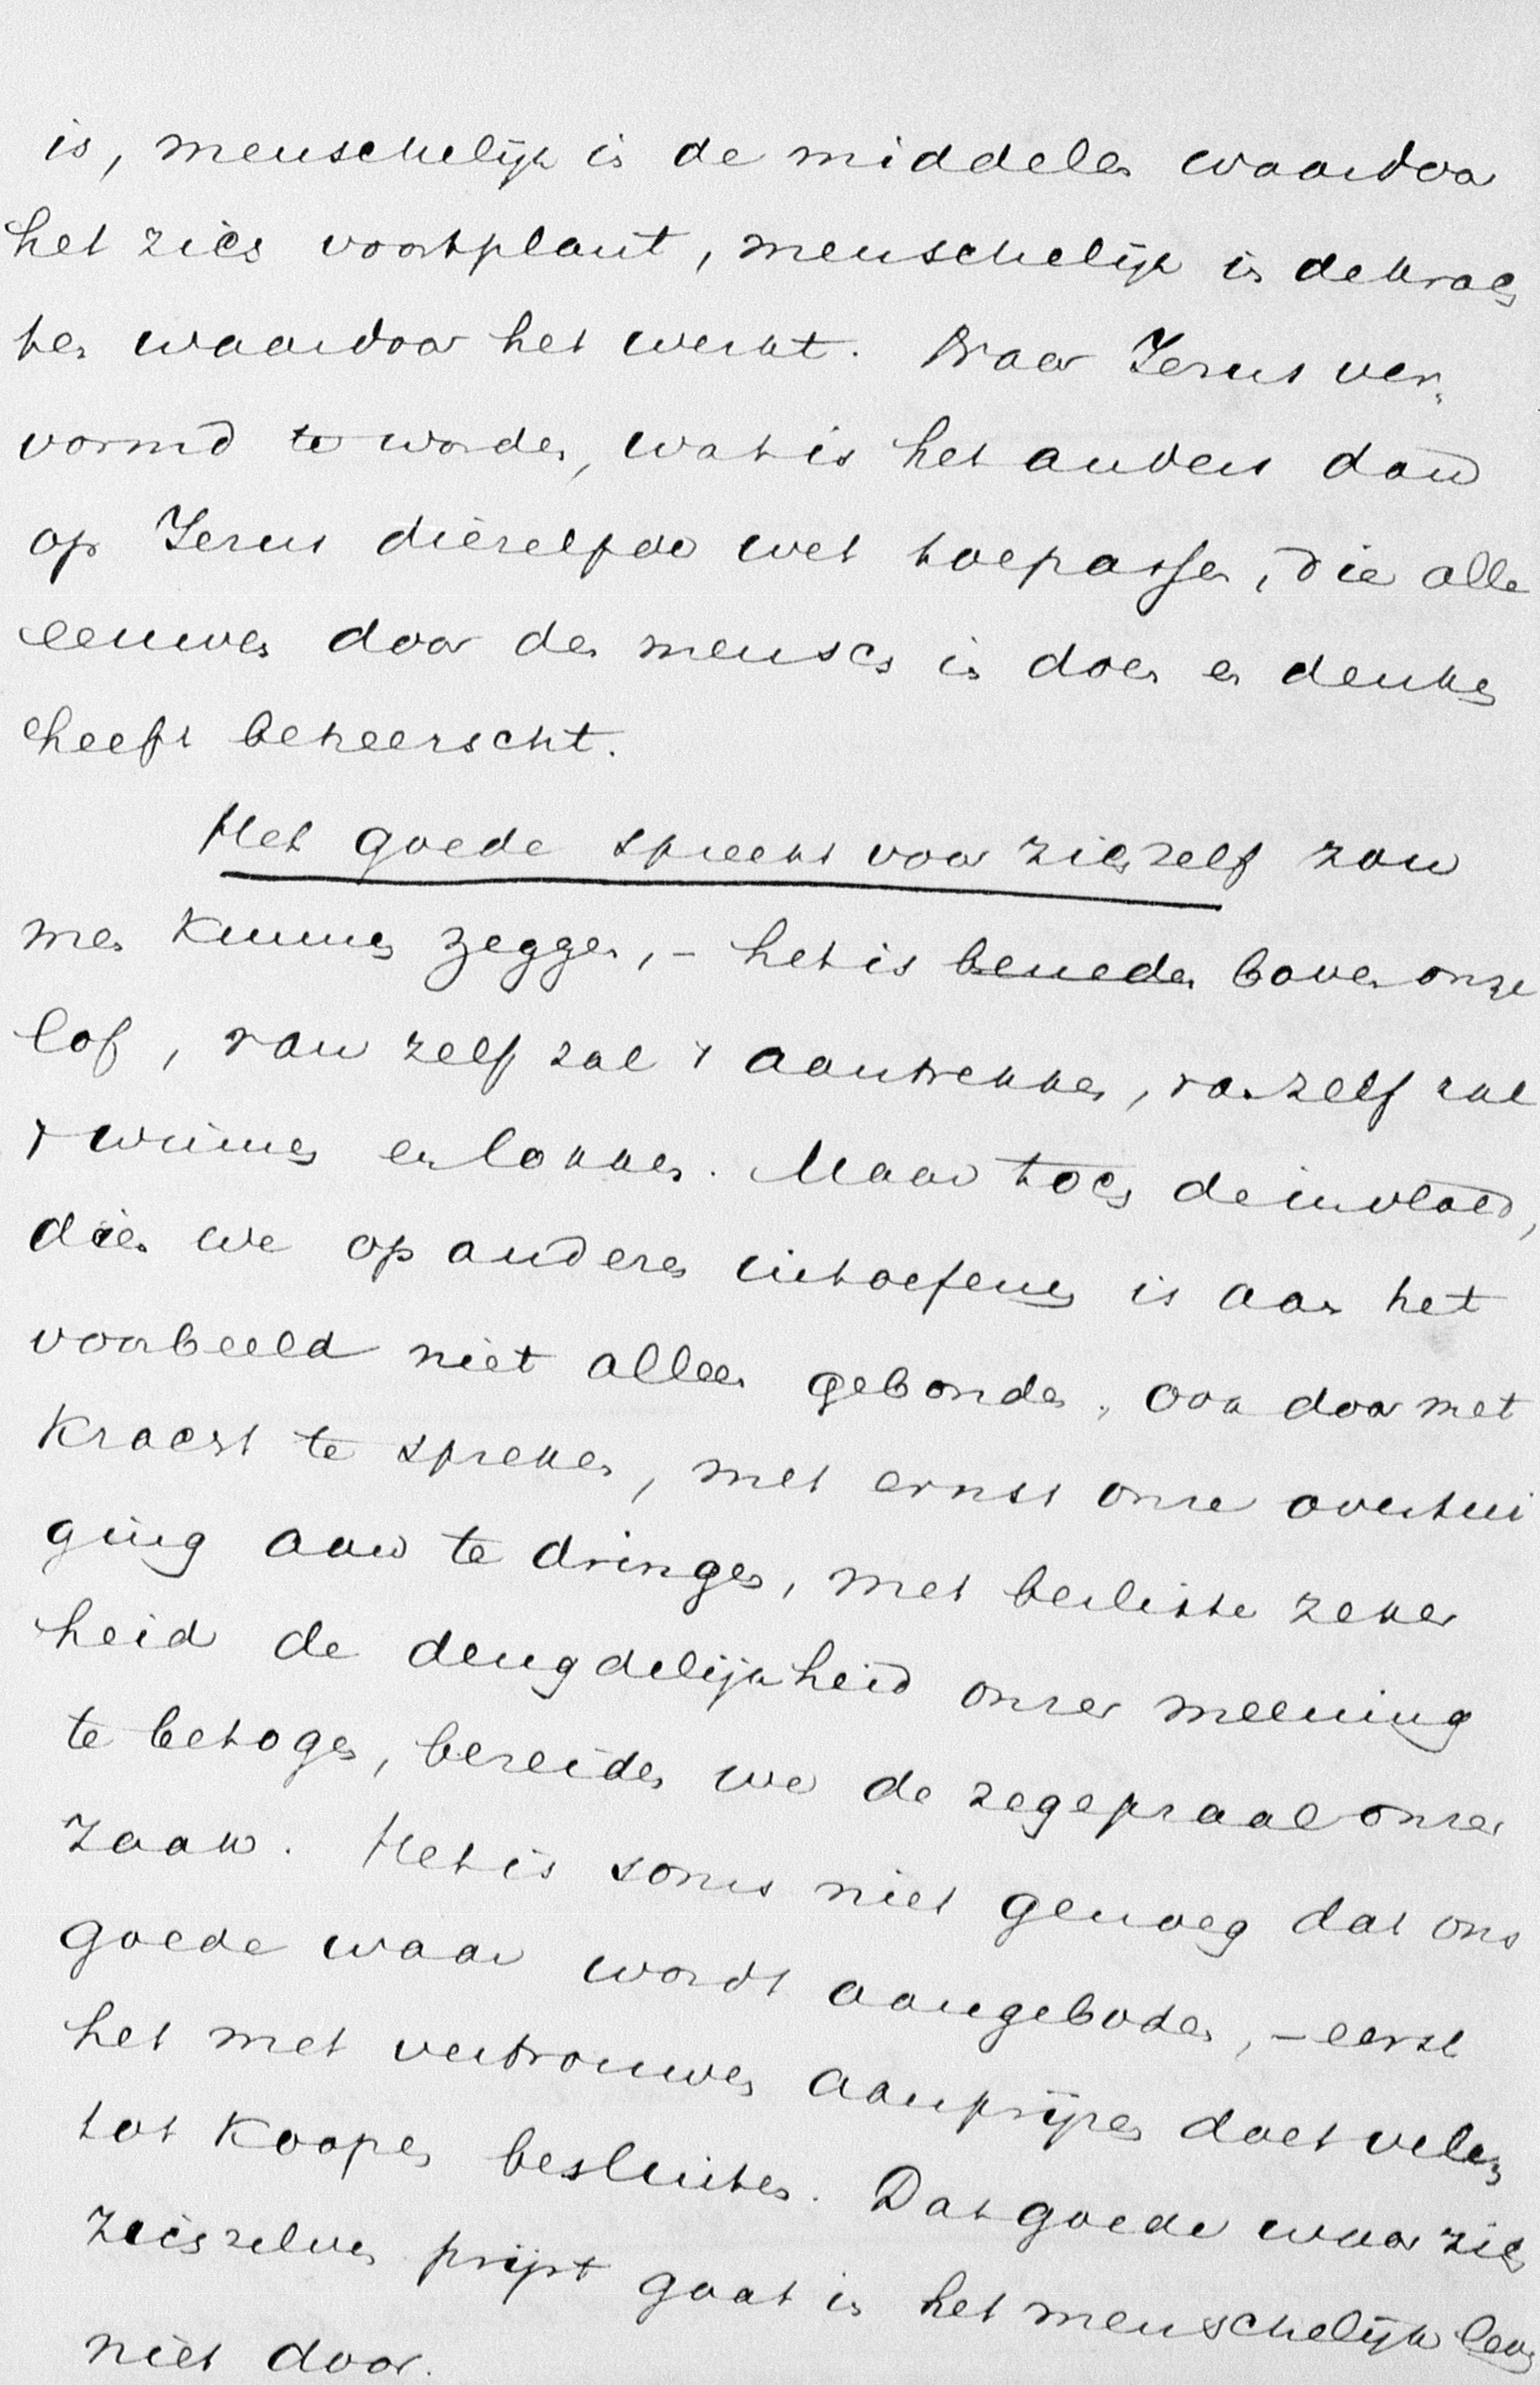 is, menschelijk in de middelen waardoor
het zich voortplant, menschelijk in de krach
ten waardoor het werkt. Naar Jezus ver-
vormd te worden, wat is het anders dan
op Jezus diezelfde wet toepassen, die alle
eeuwen door den mensch in doen en denken
heeft beheerscht.
Het goede spreekt voor zichzelf zou
men kunnen zeggen, - het is beneden boven onze
lof, van zelf zal 't aantrekken, van zelf zal
't winnen en lokken. Maar toch de invloed,
dien we op anderen uitoefenen is aan het
voorbeeld niet alleen gebonden, ook door met
kracht te spreken, met ernst onze overtui
ging aan te dringen, met besliste zeker
heid de deugdelijkheid onzer meening
te betogen, bereiden we de zegepraal onzer
zaak. Het is soms niet genoeg dat ons
goede waar wordt aangeboden, - eerst
het met vertrouwen aanprijzen doet velen
tot koopen besluiten. Dat goede waar zich
zichzelven prijst gaat in het menschelijk leven
niet door.